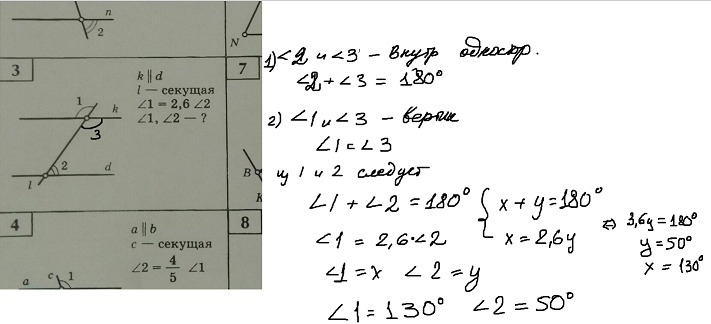 n
2
N
3
k ∥ d
l — секущая
∠1 = 2,6 ∠2
∠1, ∠2 — ?
1
k
3
2
l
d
7
В
К
4
a ∥ b
c — секущая
∠2 = 4/5 ∠1
c
1
a
8
1) ∠2 и ∠3 – Внутр одностор.
∠2 + ∠3 = 180°
2) ∠1 и ∠3 – вертик
∠1 = ∠3
из 1 и 2 следует
∠1 + ∠2 = 180°
∠1 = 2,6·∠2
∠1 = x ∠2 = y
{ x + y = 180°
x = 2,6y
⇔ 3,6y = 180°
y = 50°
x = 130°
∠1 = 130° ∠2 = 50°